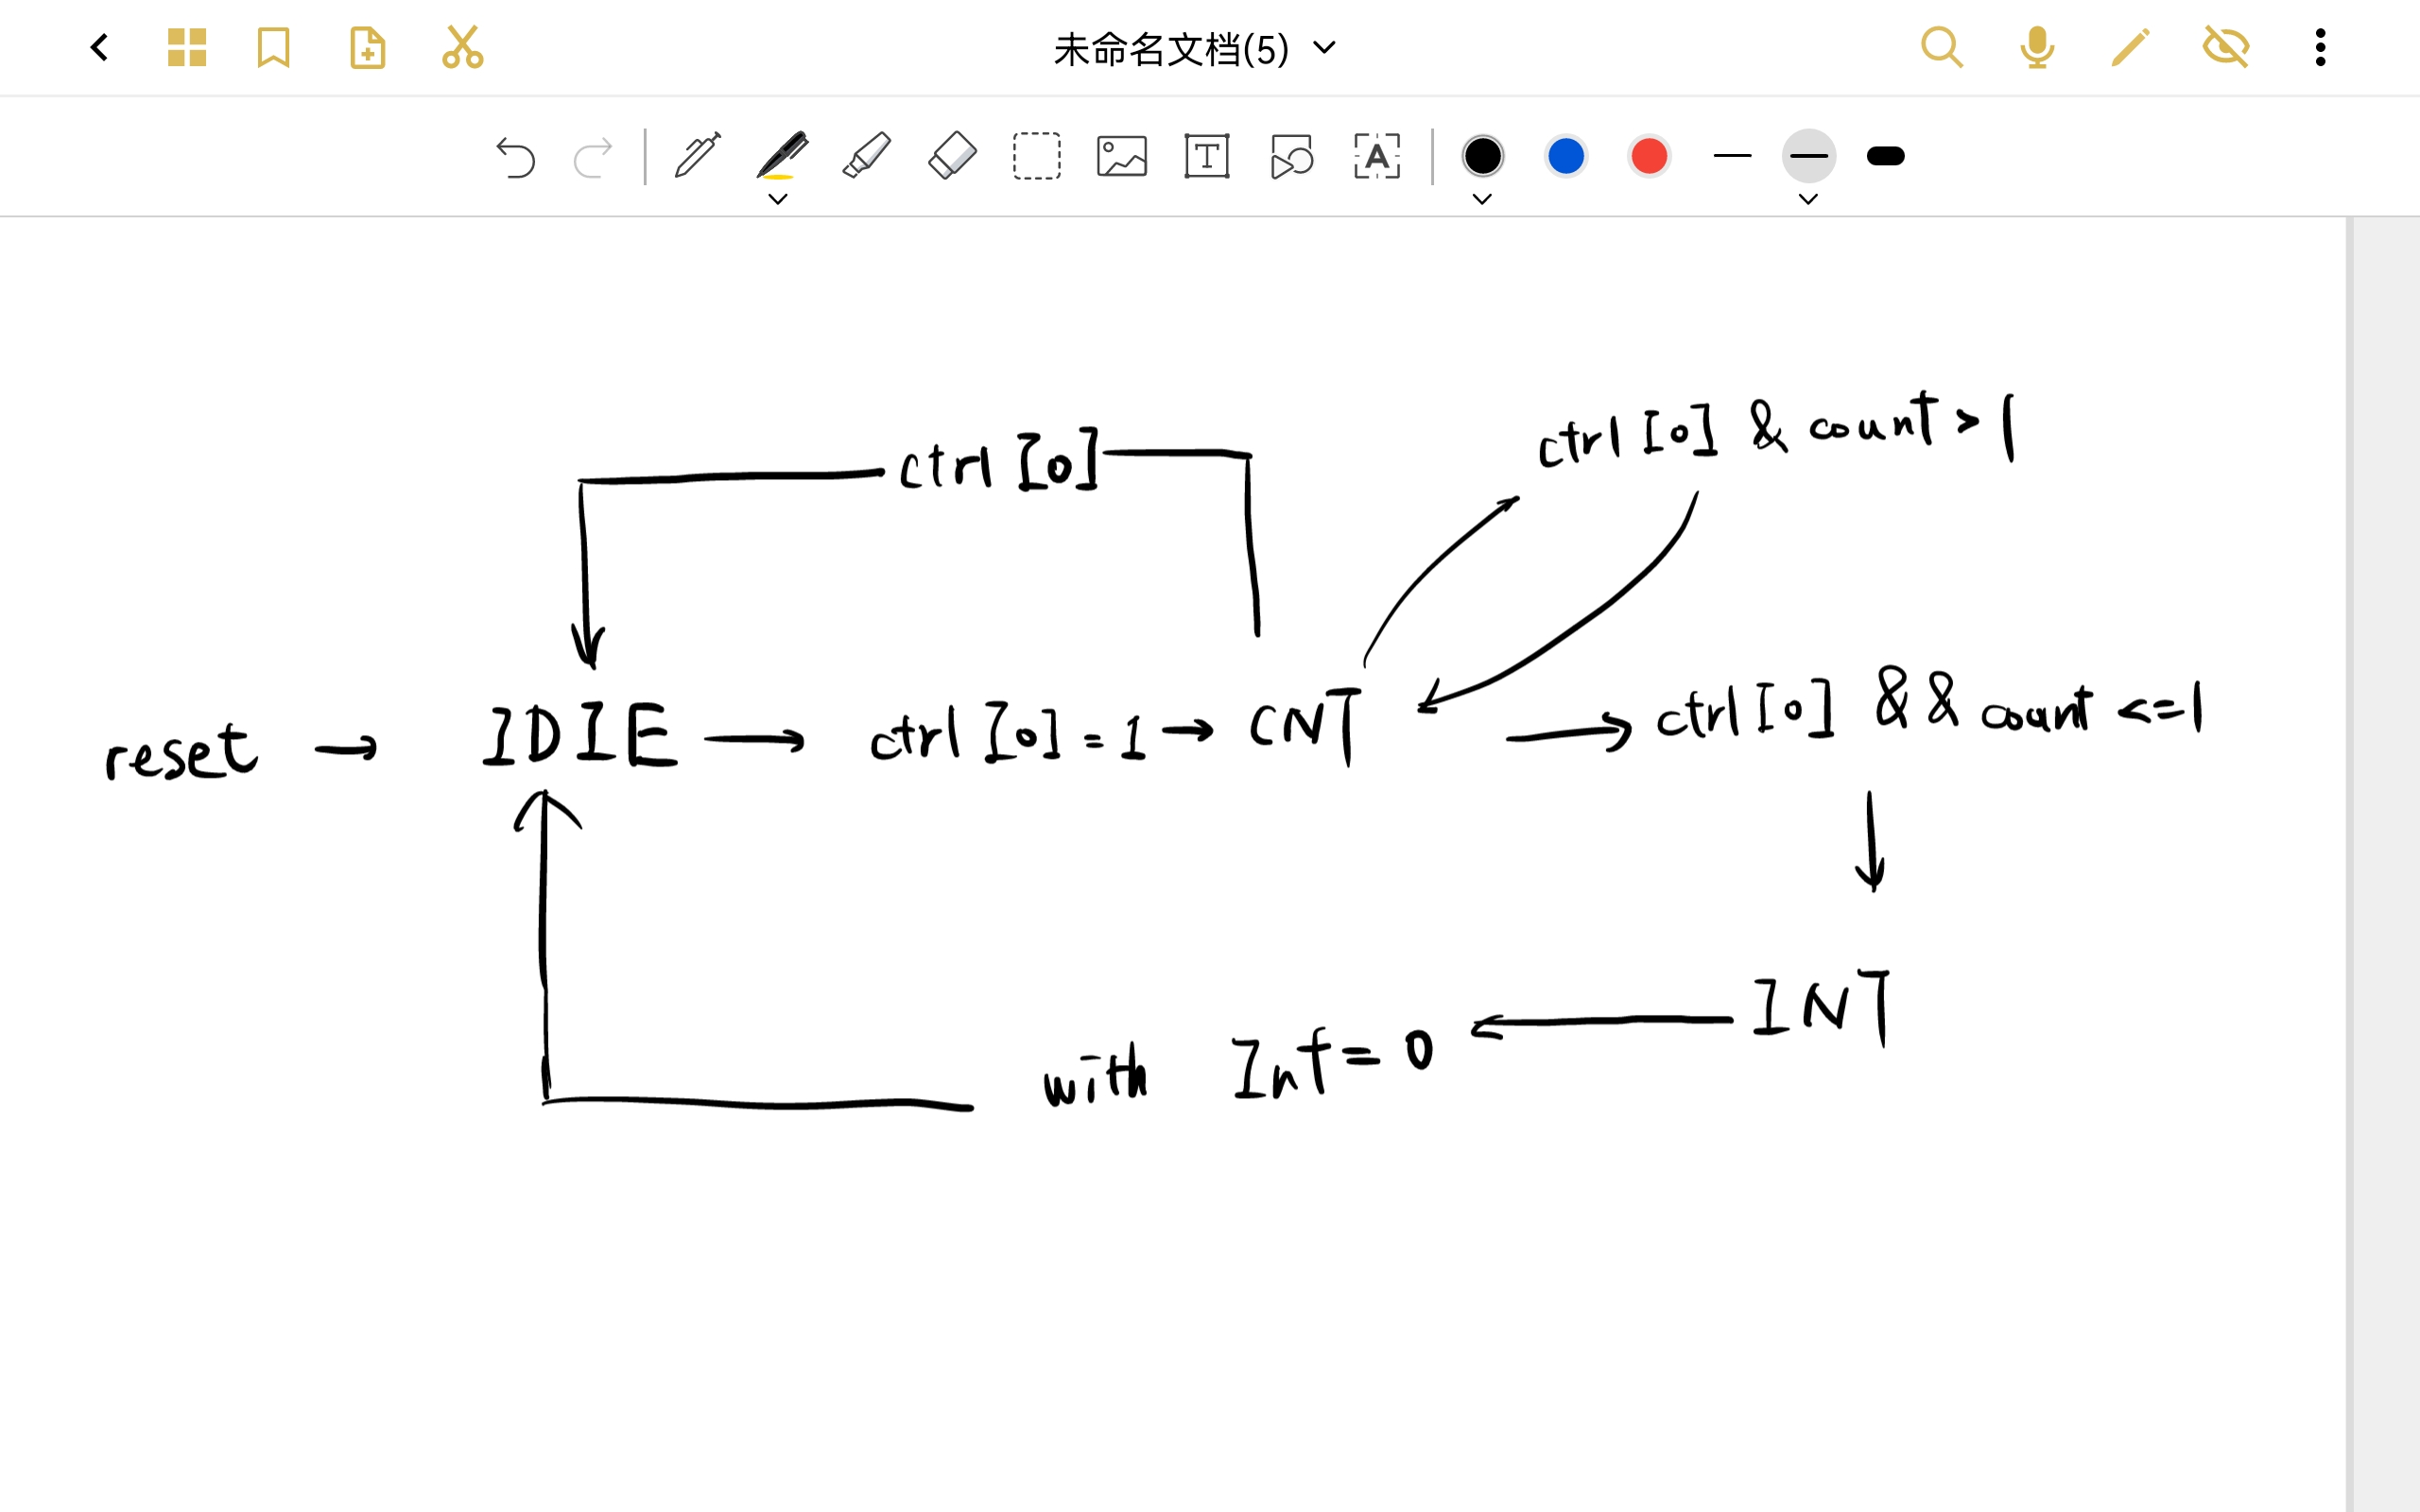 未命名文档(5)
T
A
ctrl [0] & count > 1
ctrl [0]
reset → IDIE → ctrl [0] = 1 → CNT → ctrl [0] && count <= 1
INT
with Int = 0